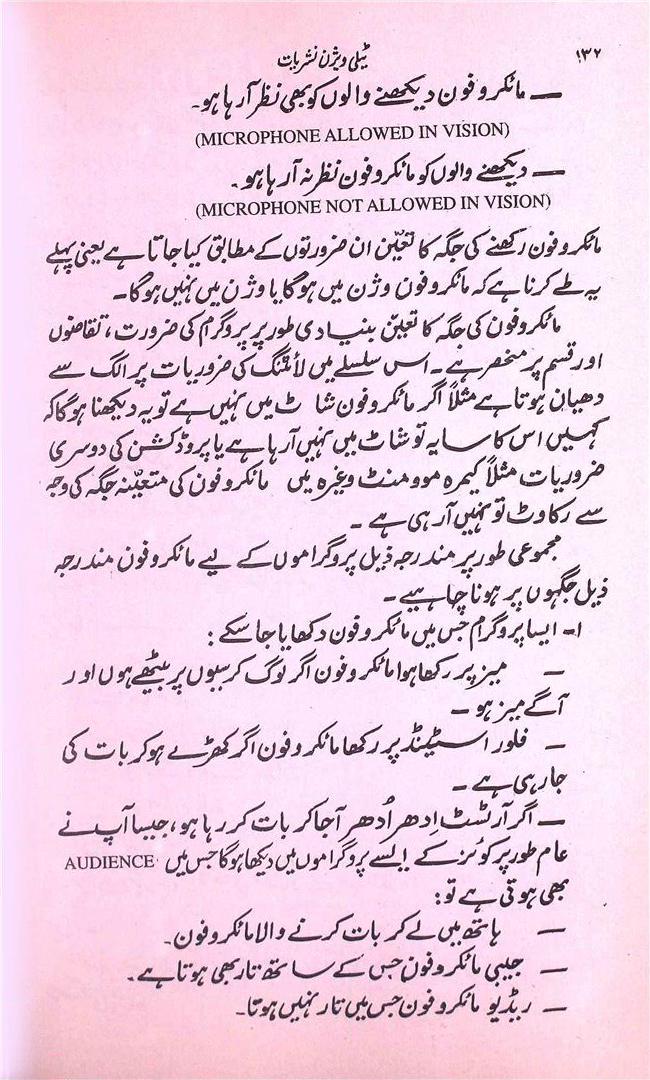 ۱۳۲ ٹیلی ویژن نشریات
— مائکروفون دیکھنے والوں کو بھی نظر آرہا ہو۔
(MICROPHONE ALLOWED IN VISION)
— دیکھنے والوں کو مائکروفون نظر نہ آرہا ہو۔
(MICROPHONE NOT ALLOWED IN VISION)
مائکروفون رکھنے کی جگہ کا تعیّن ان ضرورتوں کے مطابق کیا جاتا ہے یعنی پہلے
یہ طے کرنا ہے کہ مائکروفون وژن میں ہوگا یا وژن میں نہیں ہوگا۔
مائکروفون کی جگہ کا تعیّن بنیادی طور پر پروگرام کی ضرورت، تقاضوں
اور قسم پر منحصر ہے۔ اس سلسلے میں لائٹنگ کی ضروریات پر الگ سے
دھیان ہوتا ہے مثلاً اگر مائکروفون شاٹ میں نہیں ہے تو یہ دیکھنا ہوگا کہ
کہیں اس کا سایہ تو شاٹ میں نہیں آرہا ہے یا پروڈکشن کی دوسری
ضروریات مثلاً کیمرہ موومنٹ وغیرہ میں مائکروفون کی متعیّنہ جگہ کی وجہ
سے رکاوٹ تو نہیں آرہی ہے ۔
مجموعی طور پر مندرجہ ذیل پروگراموں کے لیے مائکروفون مندرجہ
ذیل جگہوں پر ہونا چاہیے ۔
۱- ایسا پروگرام جس میں مائکروفون دکھایا جا سکے :
— میز پر رکھا ہوا مائکروفون اگر لوگ کرسیوں پر بیٹھے ہوں اور
آگے میز ہو ۔
— فلور اسٹینڈ پر رکھا مائکروفون اگر کھڑے ہوکر بات کی
جا رہی ہے ۔
— اگر آرٹسٹ اِدھر اُدھر آجا کر بات کر رہا ہو، جیسا آپ نے
عام طور پر کوئز کے ایسے پروگراموں میں دیکھا ہوگا جس میں AUDIENCE
بھی ہوتی ہے تو:
— ہاتھ میں لے کر بات کرنے والا مائکروفون۔
— جیبی مائکروفون جس کے ساتھ تار بھی ہوتا ہے۔
— ریڈیو مائکروفون جس میں تار نہیں ہوتا۔